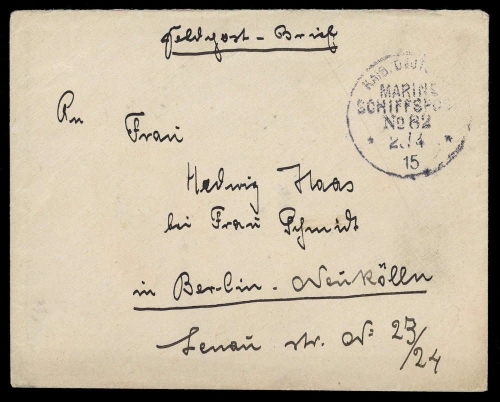 Feldpost-Brief
KAIS. DEUT
MARINE
SCHIFFSPOST
No 82
* 2 /4 *
15
An
Frau
Hedwig Haas
bei Frau Schmidt
in Berlin-Neukölln
Lenau str. No 23/24